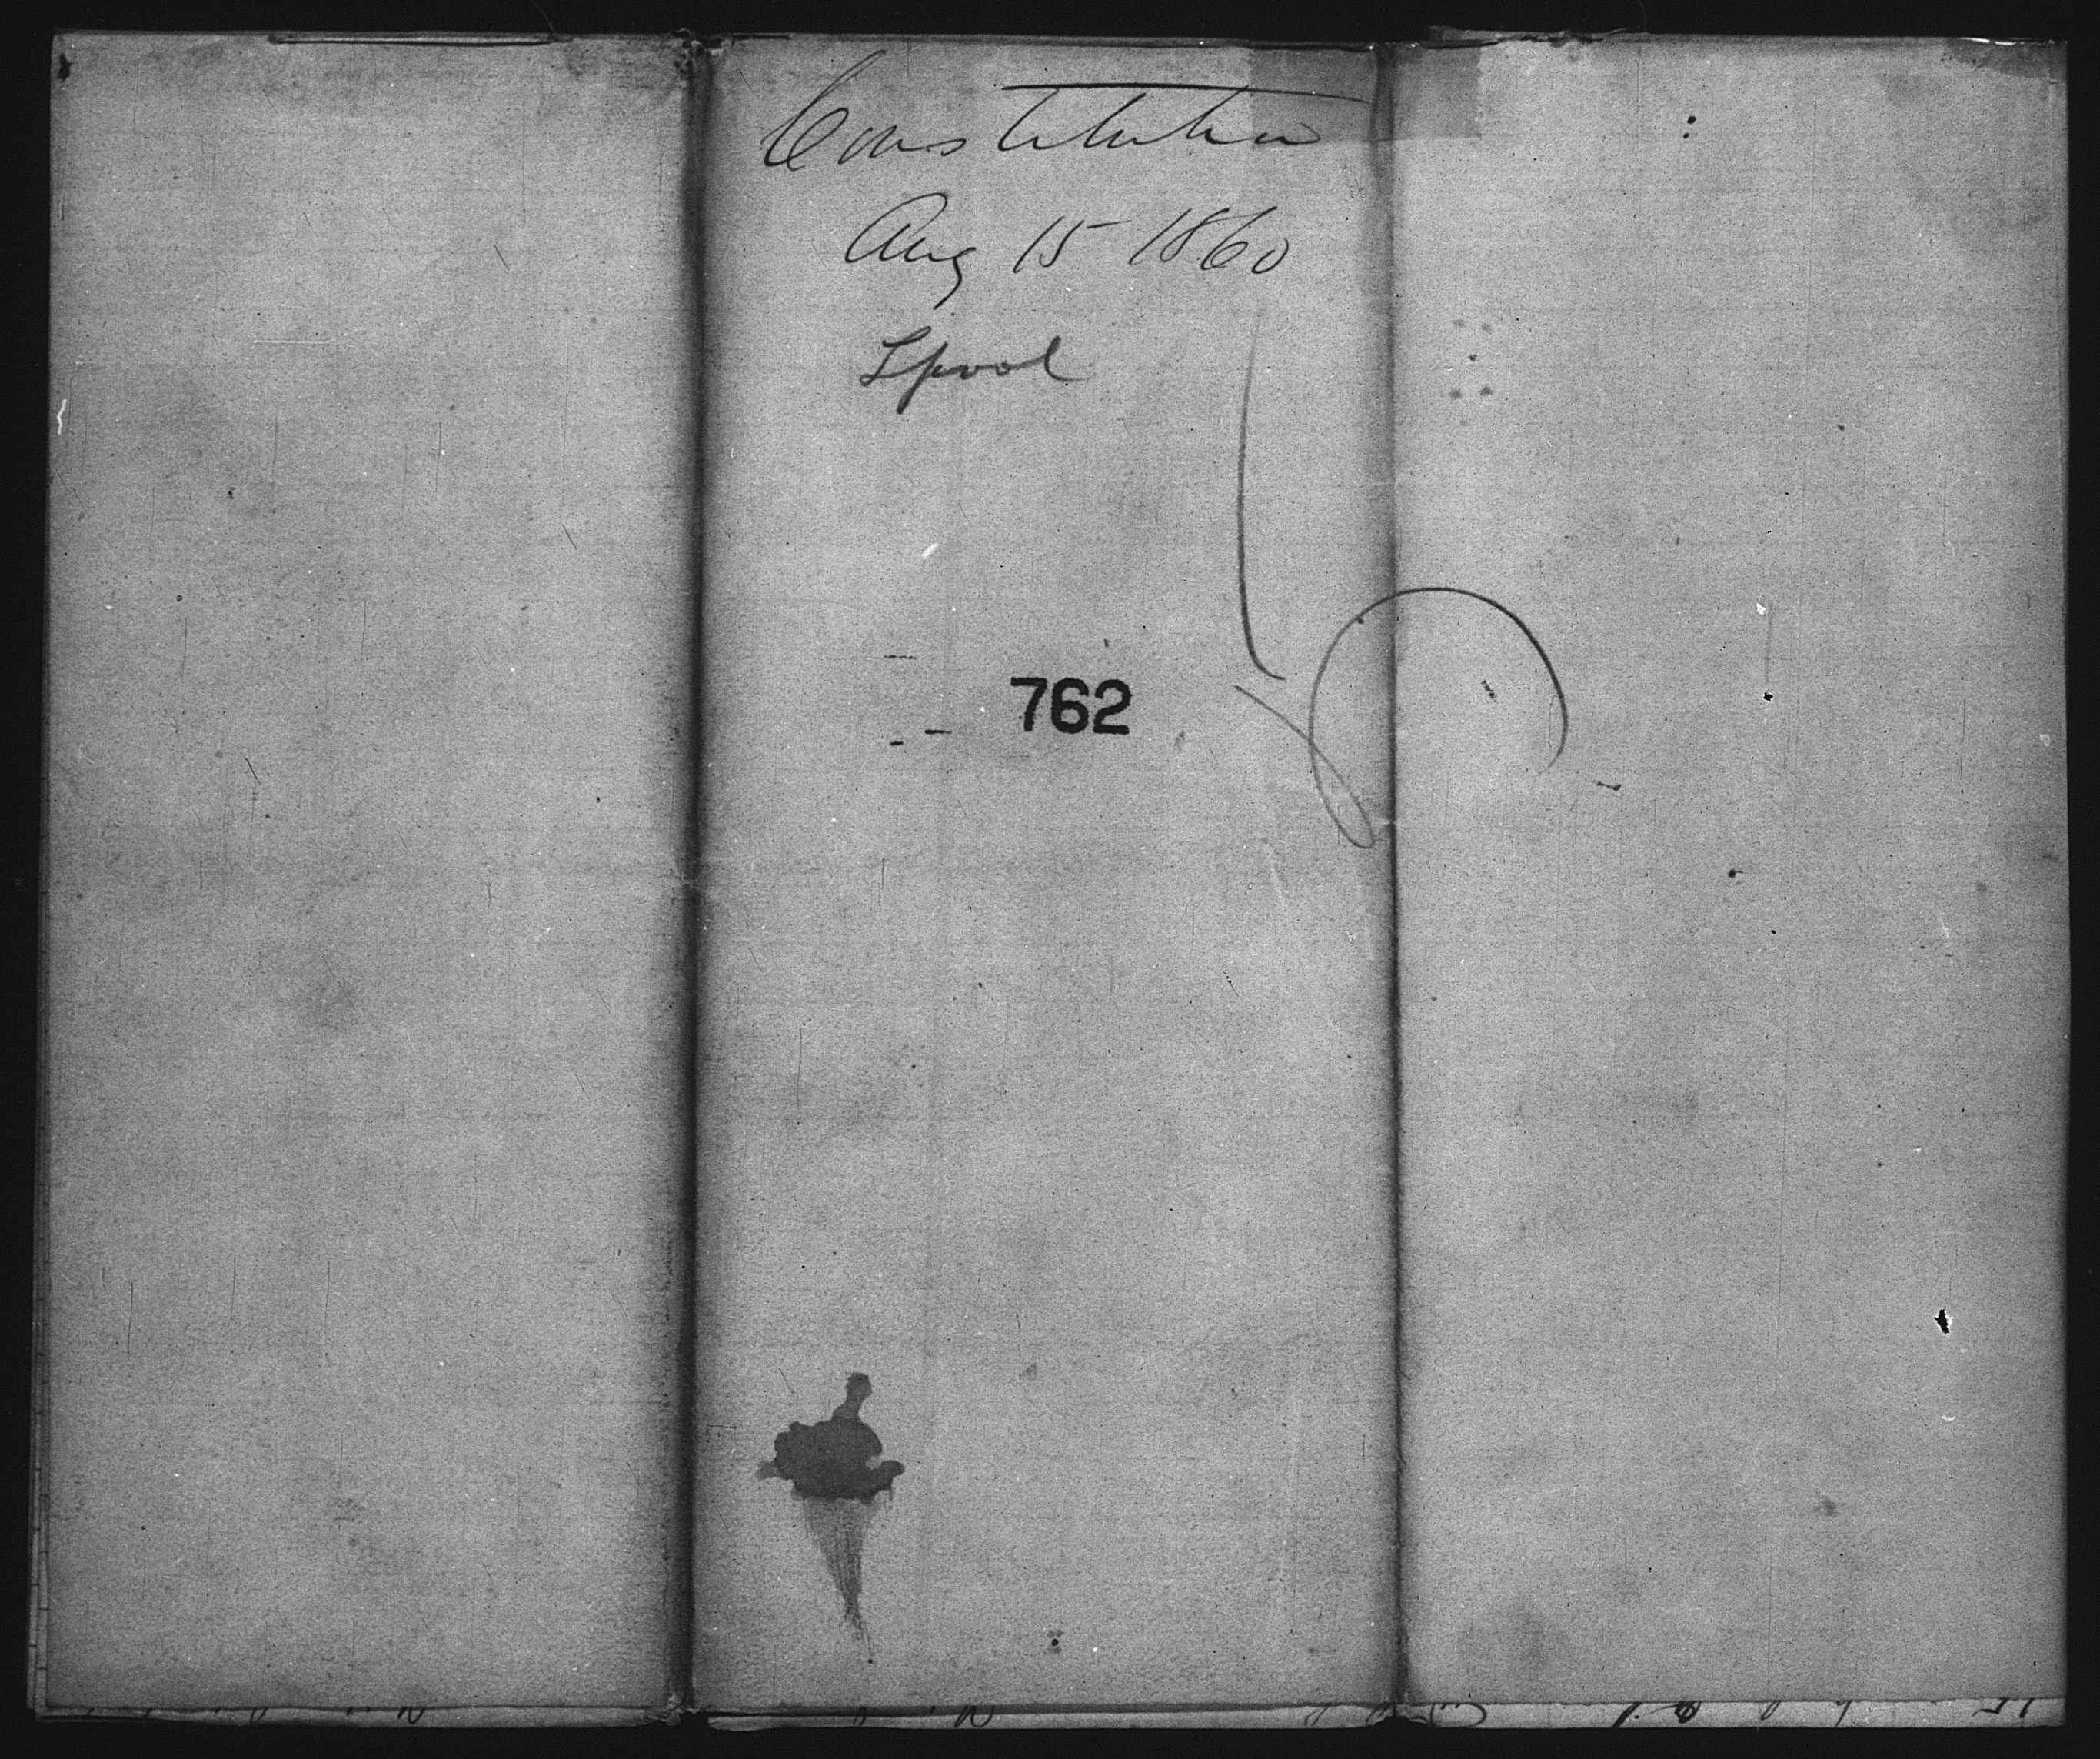 Constitution
Aug 15 1860
Lpool
762